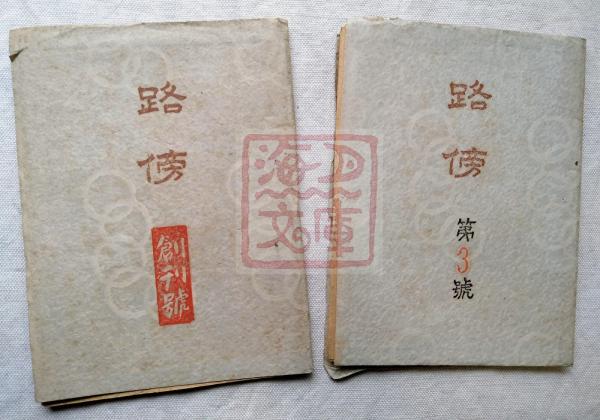 路
傍
創刊號
路
傍
第
3
號
海上
文庫